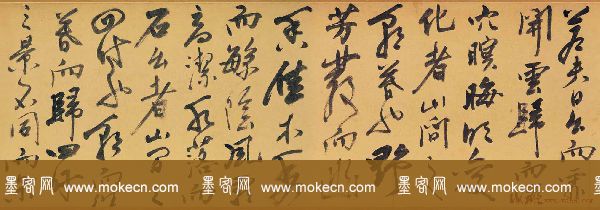 若夫日出而
開雲歸而
穴暝晦明變
化者山間之
朝暮也野
芳發而幽
香佳木秀
而繁陰風
高潔水落而
石出者山間
四時也朝
暮而歸四時
之景不同而
墨客网 www.mokecn.com 墨客网 www.mokecn.com 墨客网 www.mokecn.com